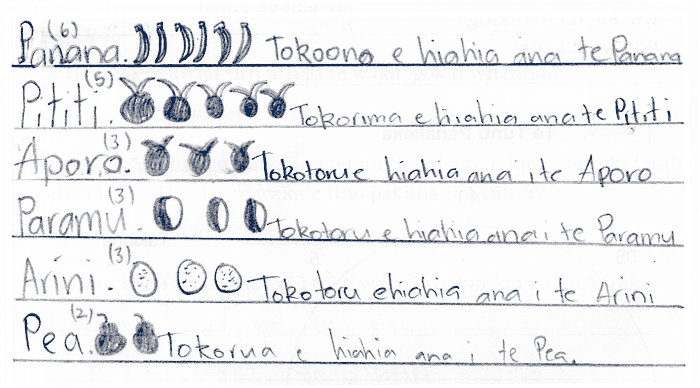 Panana. (6) Tokoono e hiahia ana te Panana
Pititi. (5) Tokorima e hiahia ana te Pititi
Aporo. (3) Tokotorue hiahia ana i te Aporo
Paramu. (3) Tokotoru e hiahia ana i te Paramu
Arini. (3) Tokotoru e hiahia ana i te Arini
Pea. (2) Tokorua e hiahia ana i te Pea.